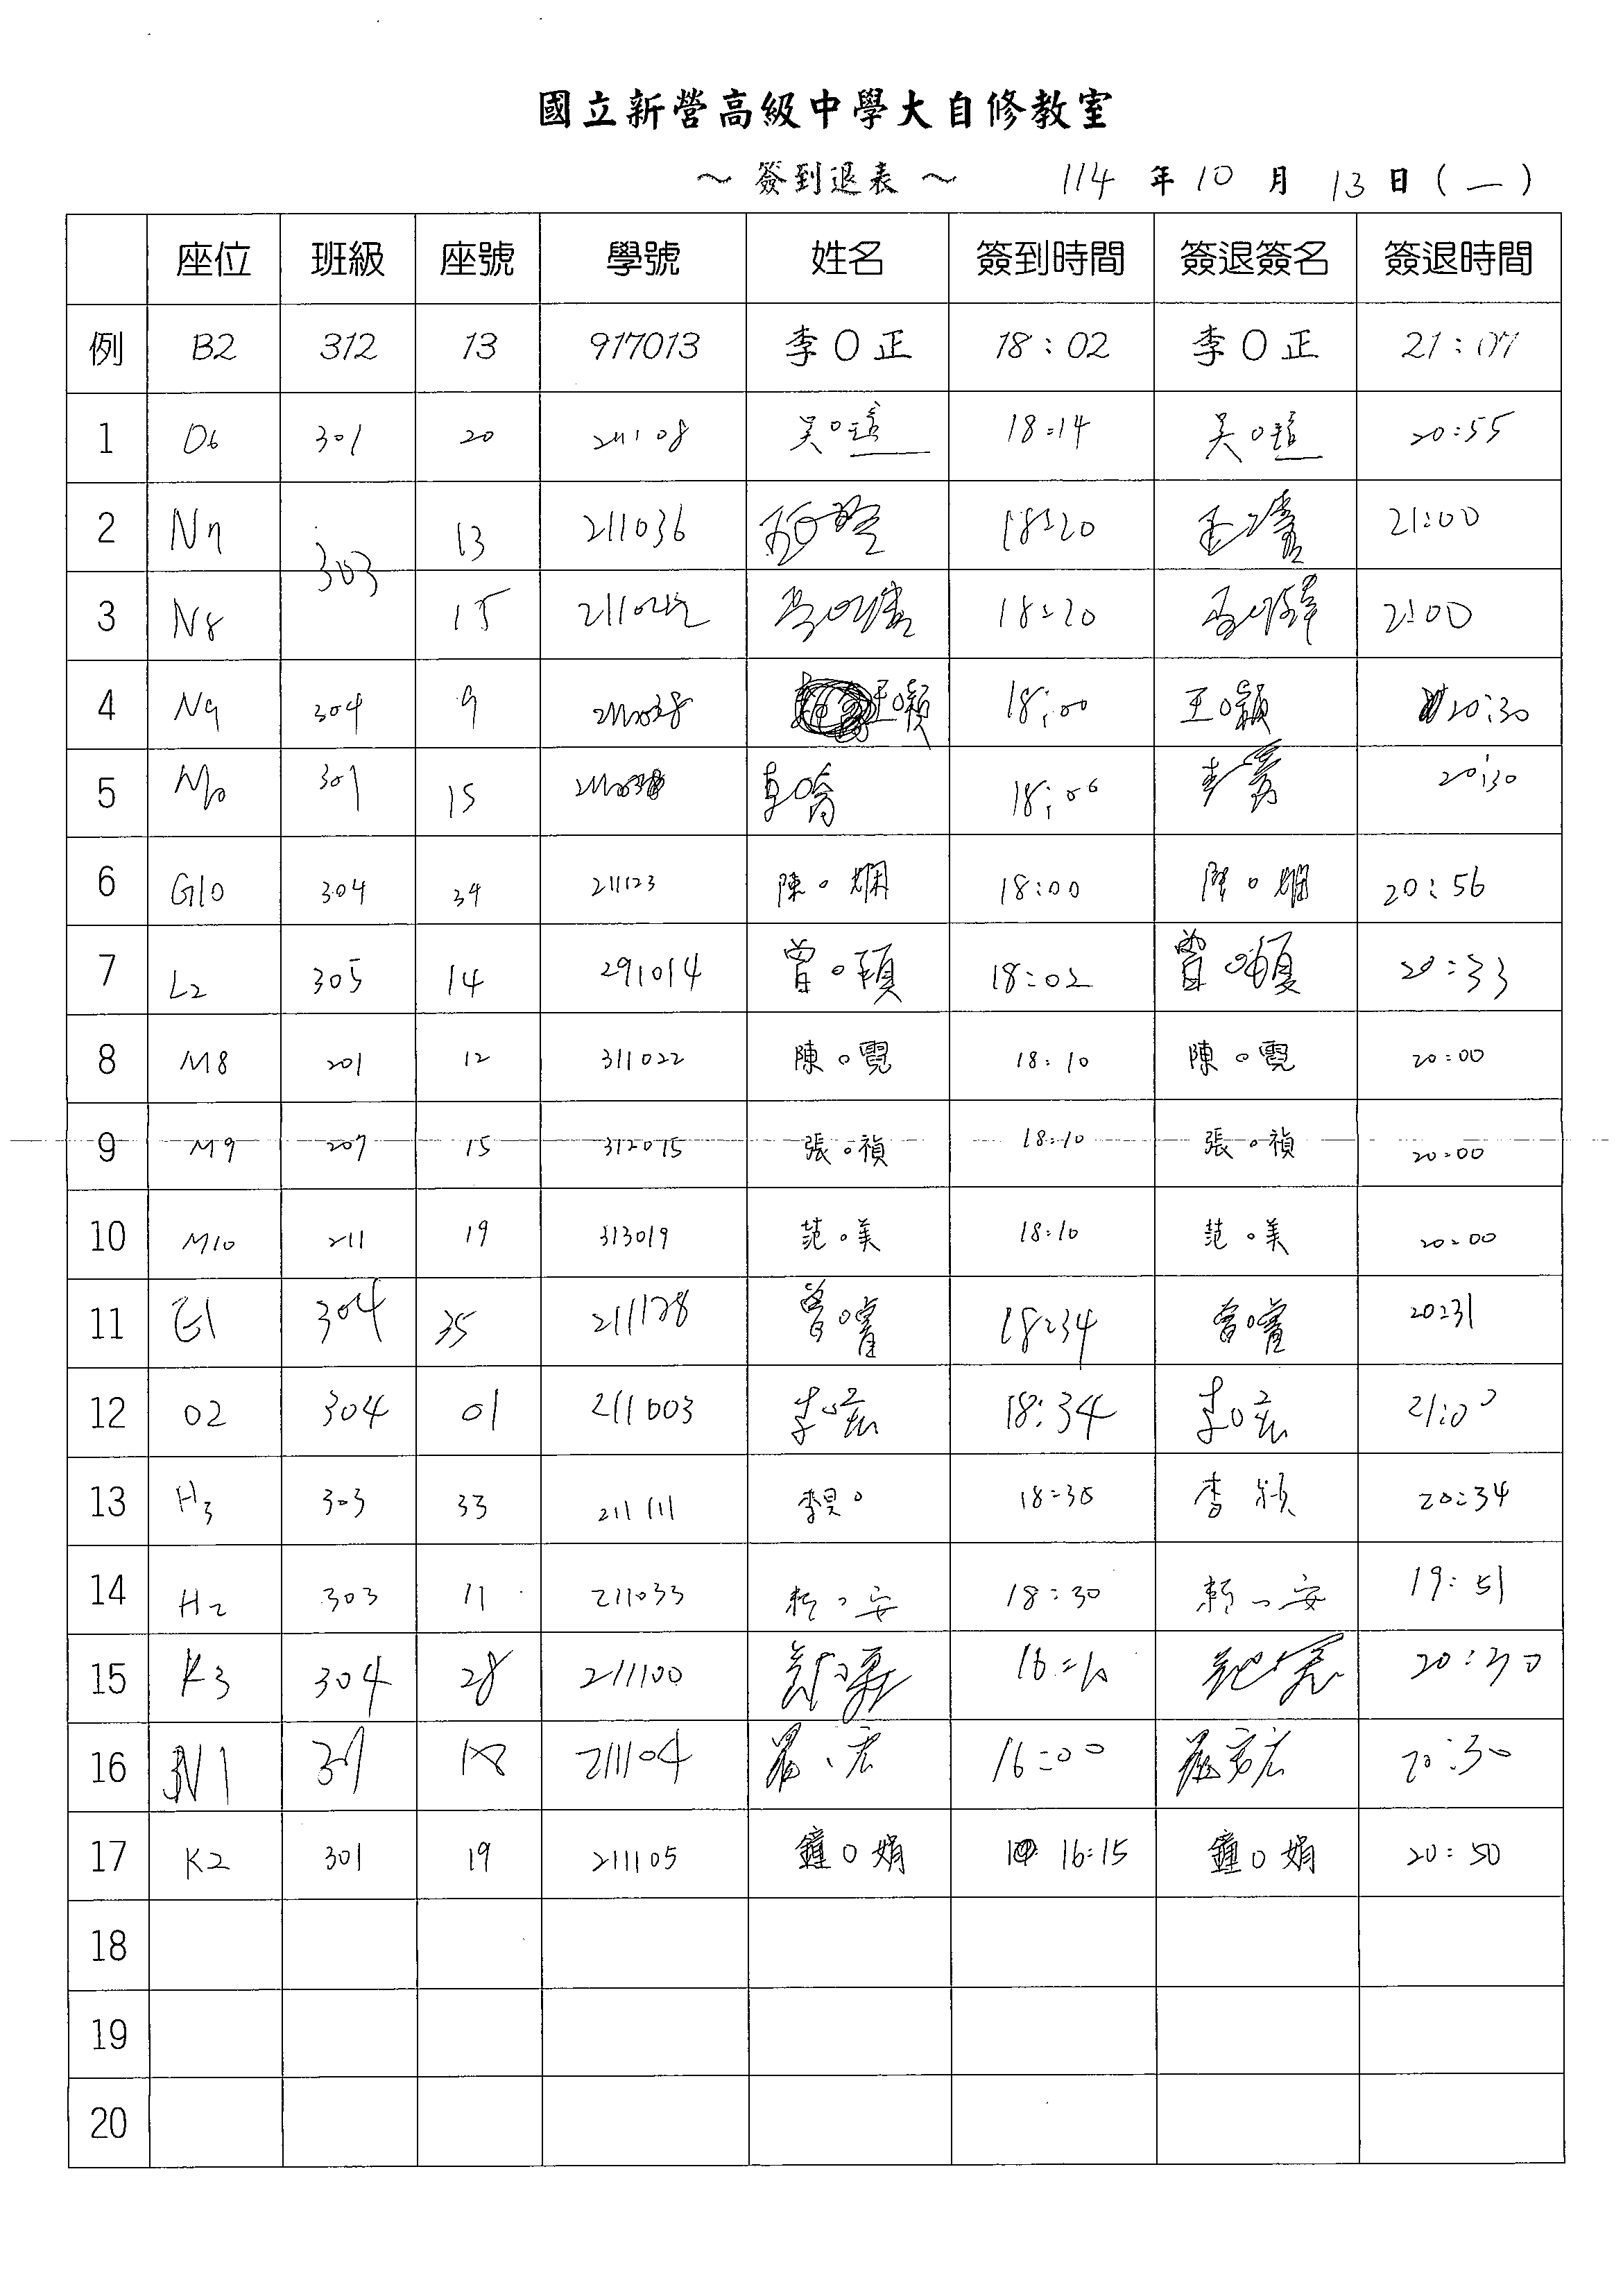 國立新營高級中學大自修教室
～ 簽到退表 ～ 114 年 10 月 13 日 ( 一 )
座位 班級 座號 學號 姓名 簽到時間 簽退簽名 簽退時間
例 B2 312 13 917013 李 O 正 18 : 02 李 O 正 21 : 07
1 O6 301 20 211108 吳O 18:14 吳O 20:55
2 N7 303 13 211036 18:20 21:00
3 N8 15 18:20 2:00
4 N9 304 9 王O穎 18:00 王O穎 20:30
5 301 15 18:06 20:30
6 G10 304 34 211123 陳O嫻 18:00 陳O嫻 20:56
7 L2 305 14 291014 曾O 18:02 曾O 20:33
8 M8 201 12 311022 陳O霓 18:10 陳O霓 20:00
9 M9 207 15 312015 張O禎 18:10 張O禎 20:00
10 M10 211 19 313019 范O美 18:10 范O美 20:00
11 E1 304 35 211128 曾O 18:34 曾O 20:31
12 O2 304 01 211003 李O宏 18:34 李O宏 21:00
13 H3 303 33 211111 18:30 李 20:34
14 H2 303 11 211033 賴O安 18:30 賴O安 19:51
15 K3 304 28 211100 20:30
16 N1 18 211104 16:00 20:30
17 K2 301 19 211105 鐘O娟 16:15 鐘O娟 20:50
18
19
20